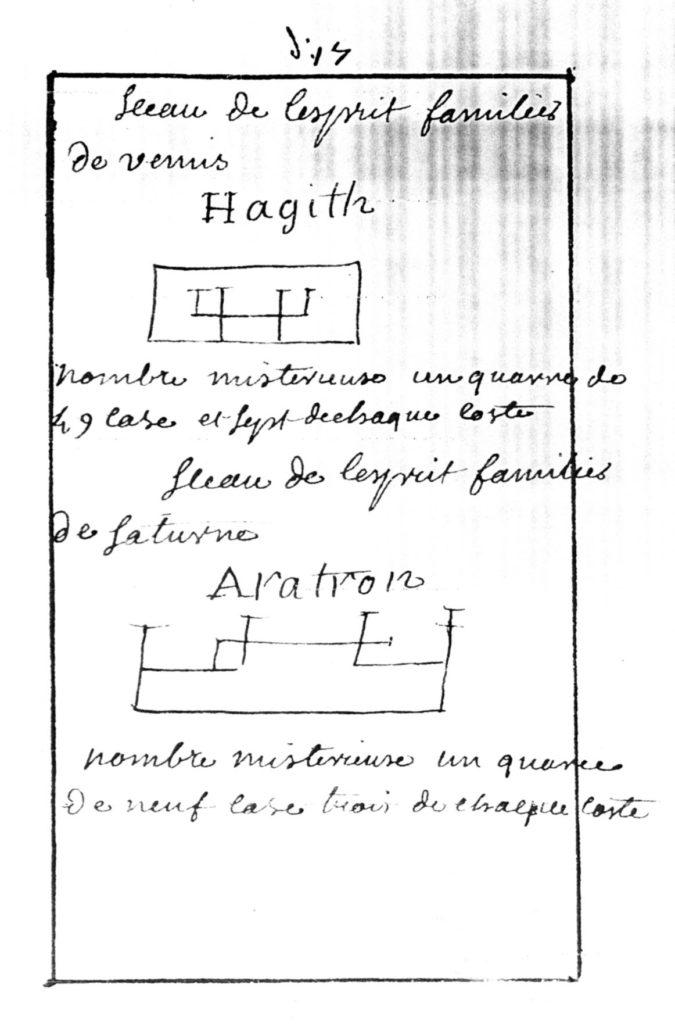 Sceau de lesprit familiés
de venus
Hagith
nombre misterieuse un quarré de
49 case et sept de chaque coste
Sceau de lesprit familiés
de saturne
Aratron
nombre misterieuse un quarée
De neuf case trois de chaque coste